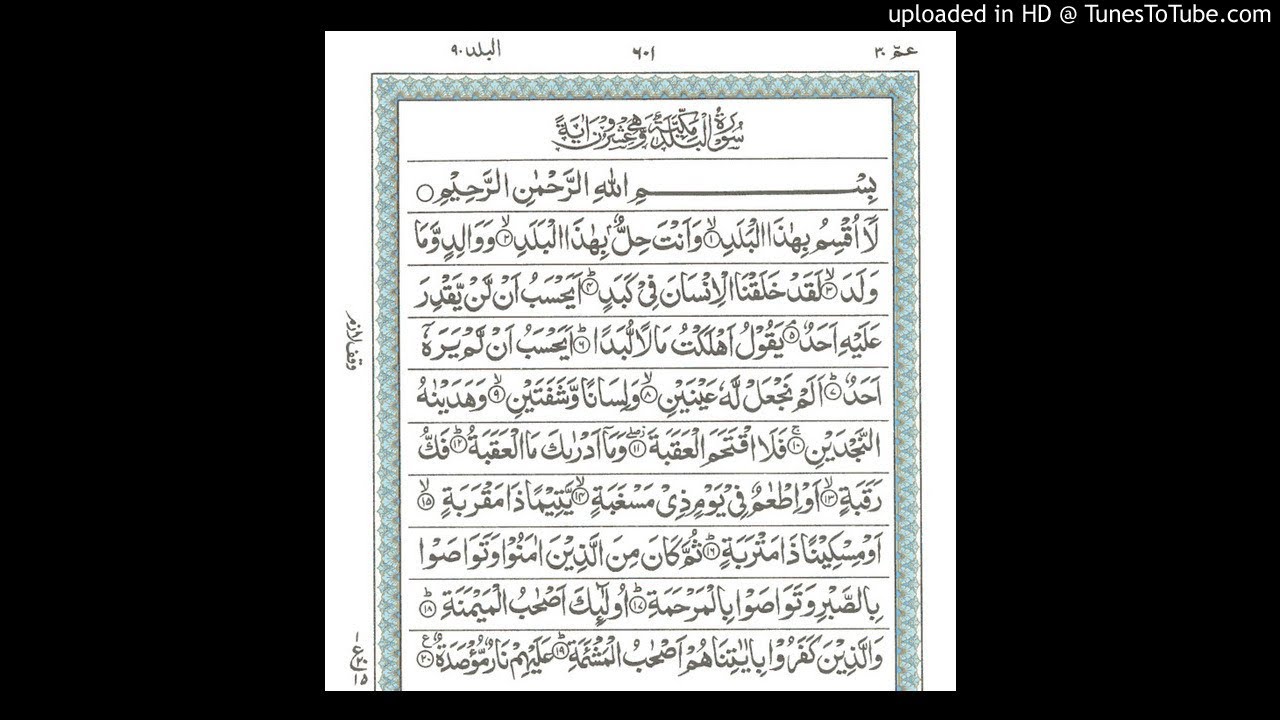 uploaded in HD @ TunesToTube.com
عمّ ٣٠ ٦٠١ البلد ٩٠
سُوْرَةُ الْبَلَدِ مَكِّيَّةٌ وَّهِيَ عِشْرُوْنَ اٰيَةً
بِسْمِ اللّٰهِ الرَّحْمٰنِ الرَّحِيْمِ
لَاۤ اُقْسِمُ بِهٰذَا الْبَلَدِ ۙ﴿۱﴾ وَاَنْتَ حِلٌّۢ بِهٰذَا الْبَلَدِ ۙ﴿۲﴾ وَوَالِدٍ وَّمَا
وَلَدَ ۙ﴿۳﴾ لَقَدْ خَلَقْنَا الْاِنْسَانَ فِىْ كَبَدٍ ؕ﴿۴﴾ اَيَحْسَبُ اَنْ لَّنْ يَّقْدِرَ
عَلَيْهِ اَحَدٌ ۘ﴿۵﴾ يَقُوْلُ اَهْلَكْتُ مَالًا لُّبَدًا ؕ﴿۶﴾ اَيَحْسَبُ اَنْ لَّمْ يَرَهٗۤ
اَحَدٌ ؕ﴿۷﴾ اَلَمْ نَجْعَلْ لَّهٗ عَيْنَيْنِ ۙ﴿۸﴾ وَلِسَانًا وَّشَفَتَيْنِ ۙ﴿۹﴾ وَهَدَيْنٰهُ
النَّجْدَيْنِ ۚ﴿۱۰﴾ فَلَا اقْتَحَمَ الْعَقَبَةَ ۖ﴿۱۱﴾ وَمَاۤ اَدْرٰىكَ مَا الْعَقَبَةُ ؕ﴿۱۲﴾ فَكُّ
رَقَبَةٍ ۙ﴿۱۳﴾ اَوْ اِطْعٰمٌ فِىْ يَوْمٍ ذِىْ مَسْغَبَةٍ ۙ﴿۱۴﴾ يَّتِيْمًا ذَا مَقْرَبَةٍ ۙ﴿۱۵﴾
اَوْ مِسْكِيْنًا ذَا مَتْرَبَةٍ ؕ﴿۱۶﴾ ثُمَّ كَانَ مِنَ الَّذِيْنَ اٰمَنُوْا وَتَوَاصَوْا
بِالصَّبْرِ وَتَوَاصَوْا بِالْمَرْحَمَةِ ؕ﴿۱۷﴾ اُولٰٓئِكَ اَصْحٰبُ الْمَيْمَنَةِ ؕ﴿۱۸﴾
وَالَّذِيْنَ كَفَرُوْا بِاٰيٰتِنَا هُمْ اَصْحٰبُ الْمَشْئَمَةِ ؕ﴿۱۹﴾ عَلَيْهِمْ نَارٌ مُّؤْصَدَةٌ ﴿۲۰﴾
وقف لازم
ع
۱۵